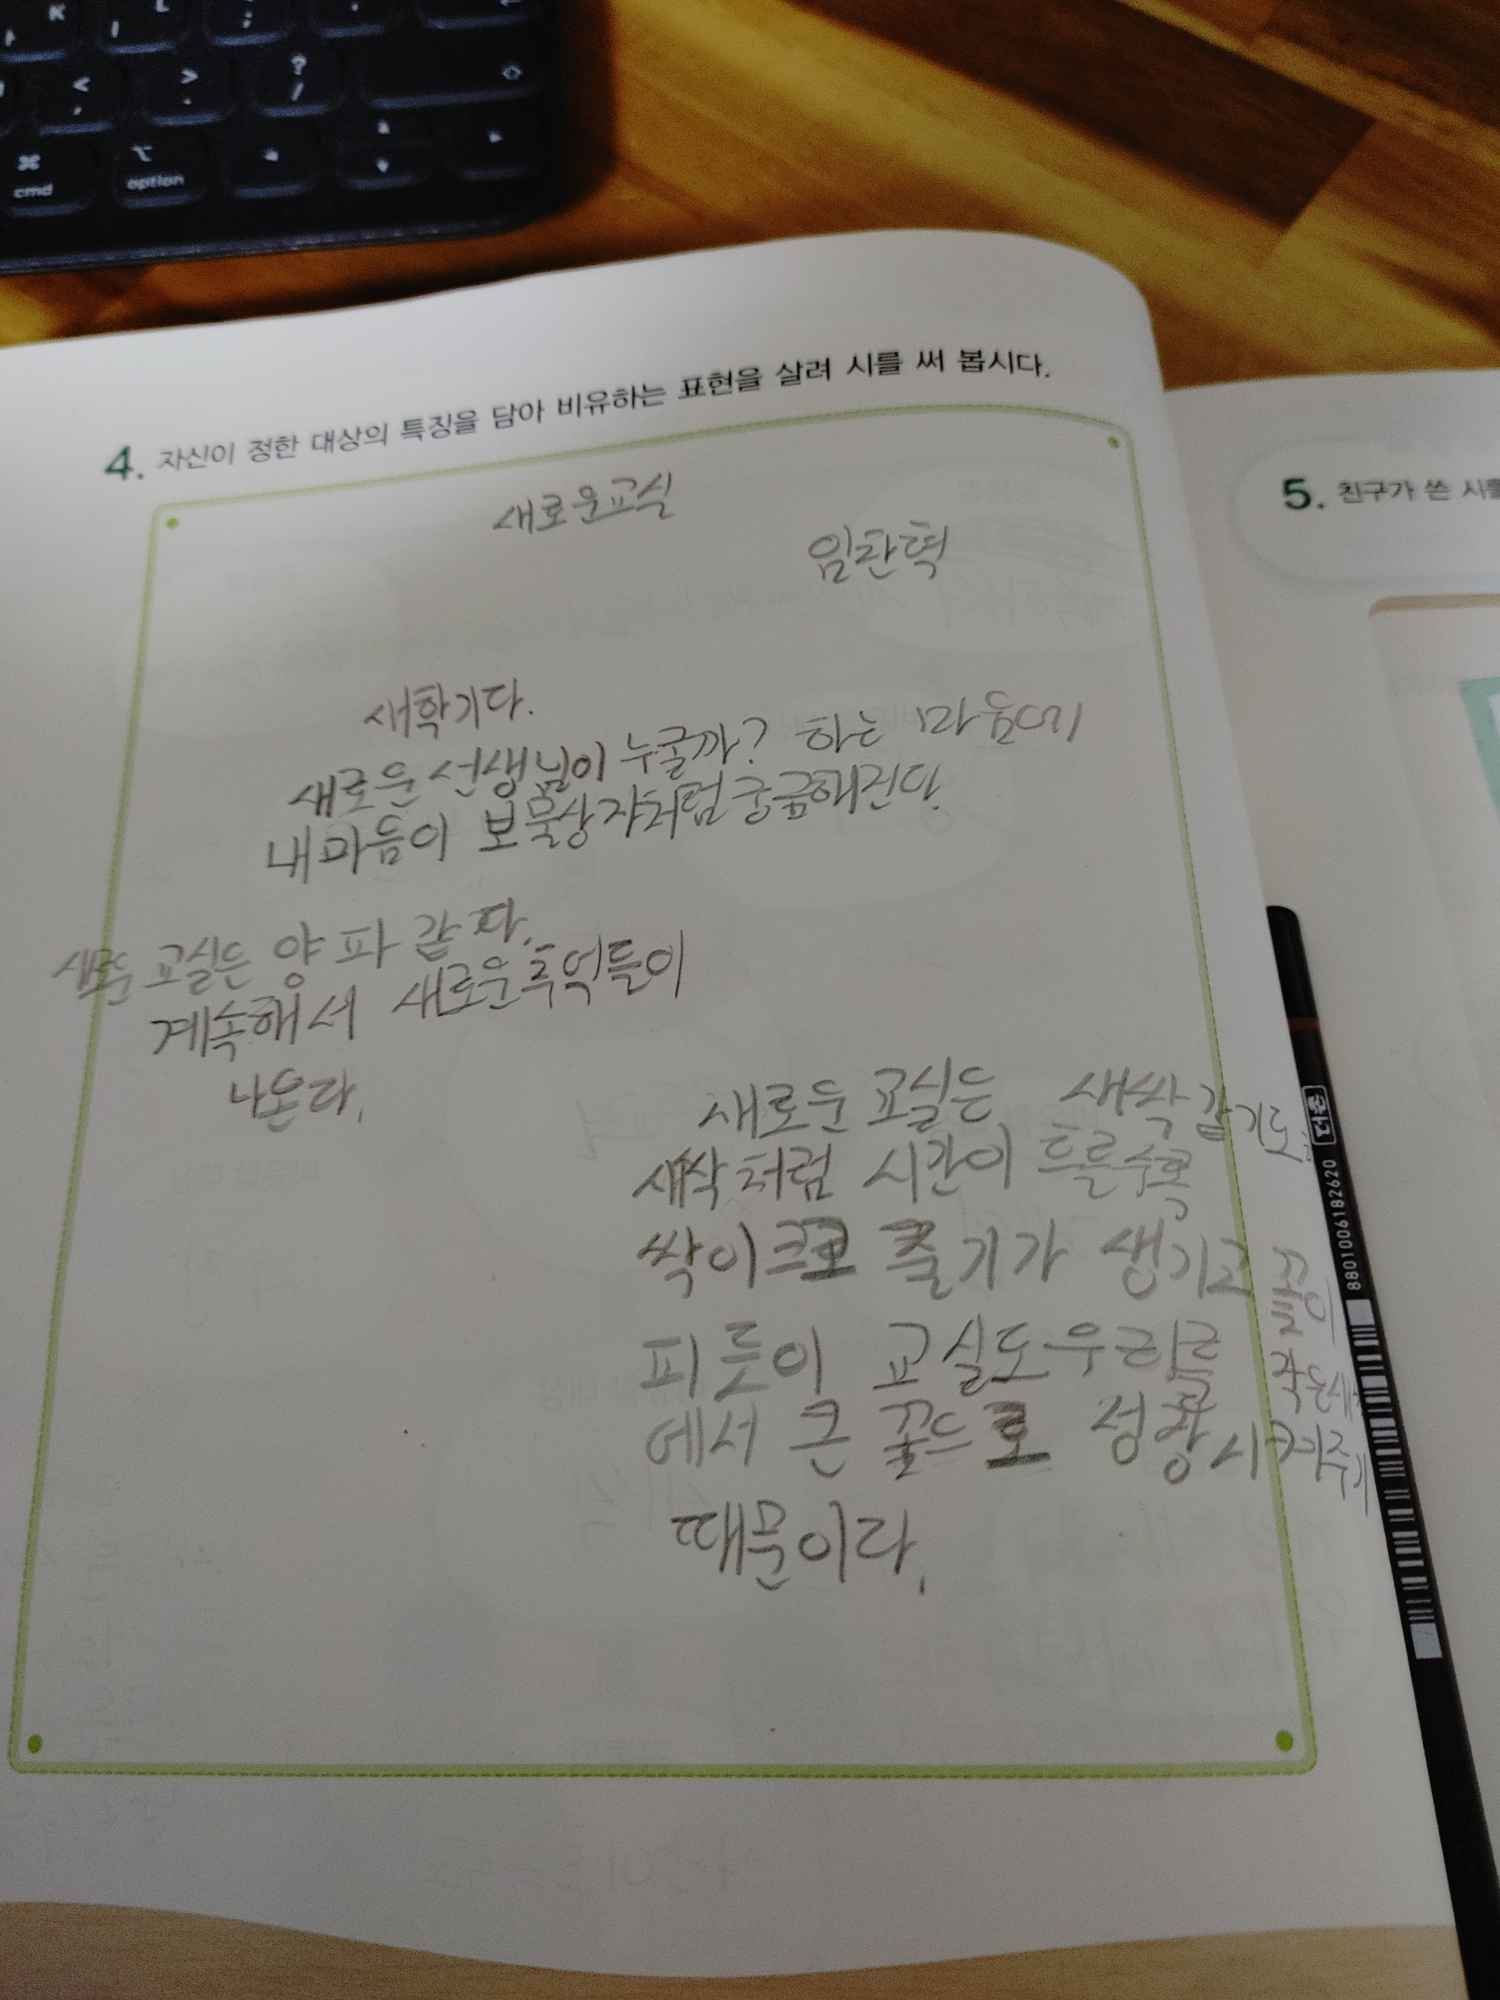 K
L
:
;
<
,
>
.
?
/
⌘
cmd
⌥
option
4. 자신이 정한 대상의 특징을 담아 비유하는 표현을 살려 시를 써 봅시다.
새로운교실
임찬혁
새학기다.
새로운 선생님이 누굴까? 하는 마음에
내마음이 보물상자처럼 궁금해진다.
새로운 교실은 양파 같다.
계속해서 새로운추억들이
나온다.
새로운 교실은 새싹 같기도
새싹처럼 시간이 흐를수록
싹이크고 줄기가 생기고 꽃이
피듯이 교실도우리를 작은
에서 큰 꽃으로 성장시켜주기
때문이다.
5. 친구가 쓴 시를
8801006182620